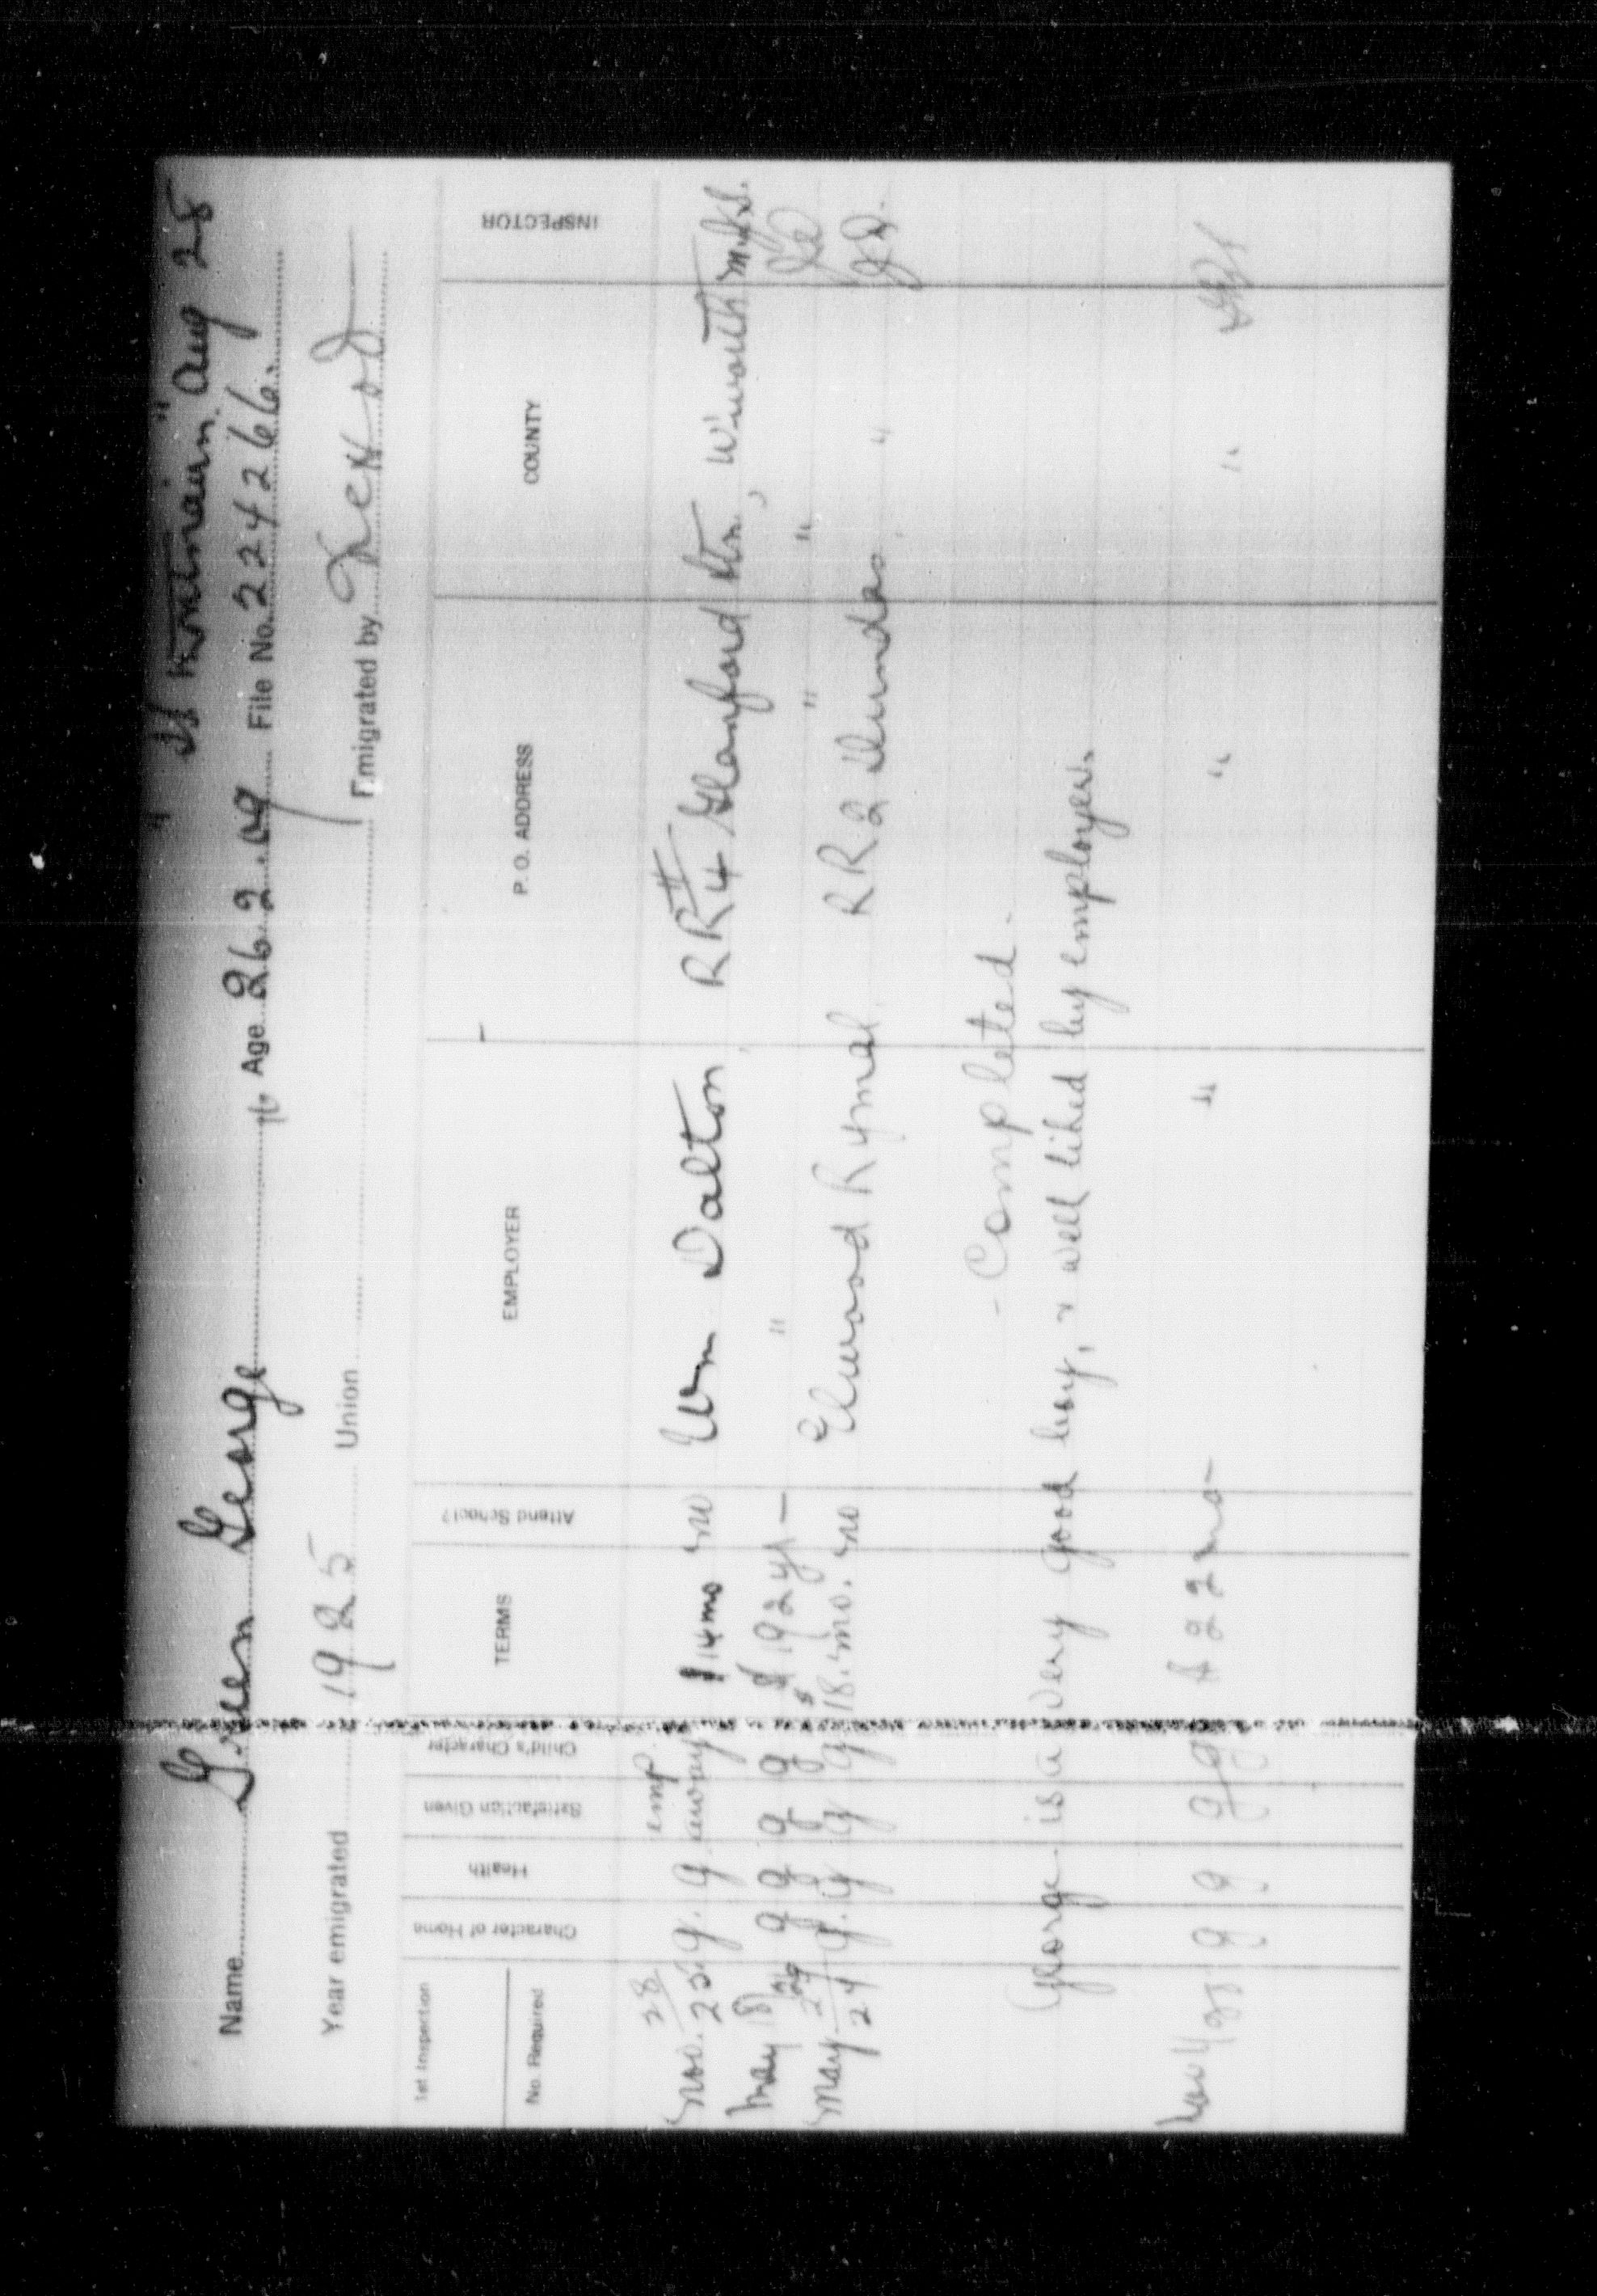 " SS Montnairn " Aug 28
Name Green George 16 Age 26.2.09 File No. 224266.
Year emigrated 1925 Union Emigrated by
1st Inspection
No. Required
Character of Home
Health
Satisfaction Given
Child's Character
TERMS
Attend School?
EMPLOYER
P. O. ADDRESS
COUNTY
INSPECTOR
28 emp
Nov. 25 g. g away 14 mo no Wm Dalton, RR#4 Glanford Stn, W'worth
May 18 g g g g $192 yr — " " "
May 24 g. g g g 18. mo. no Elwood Rymal RR2 Dundas "
- Completed.
George is a very good boy, & well liked by employer.
Nov g g g g 22 mo — " " "